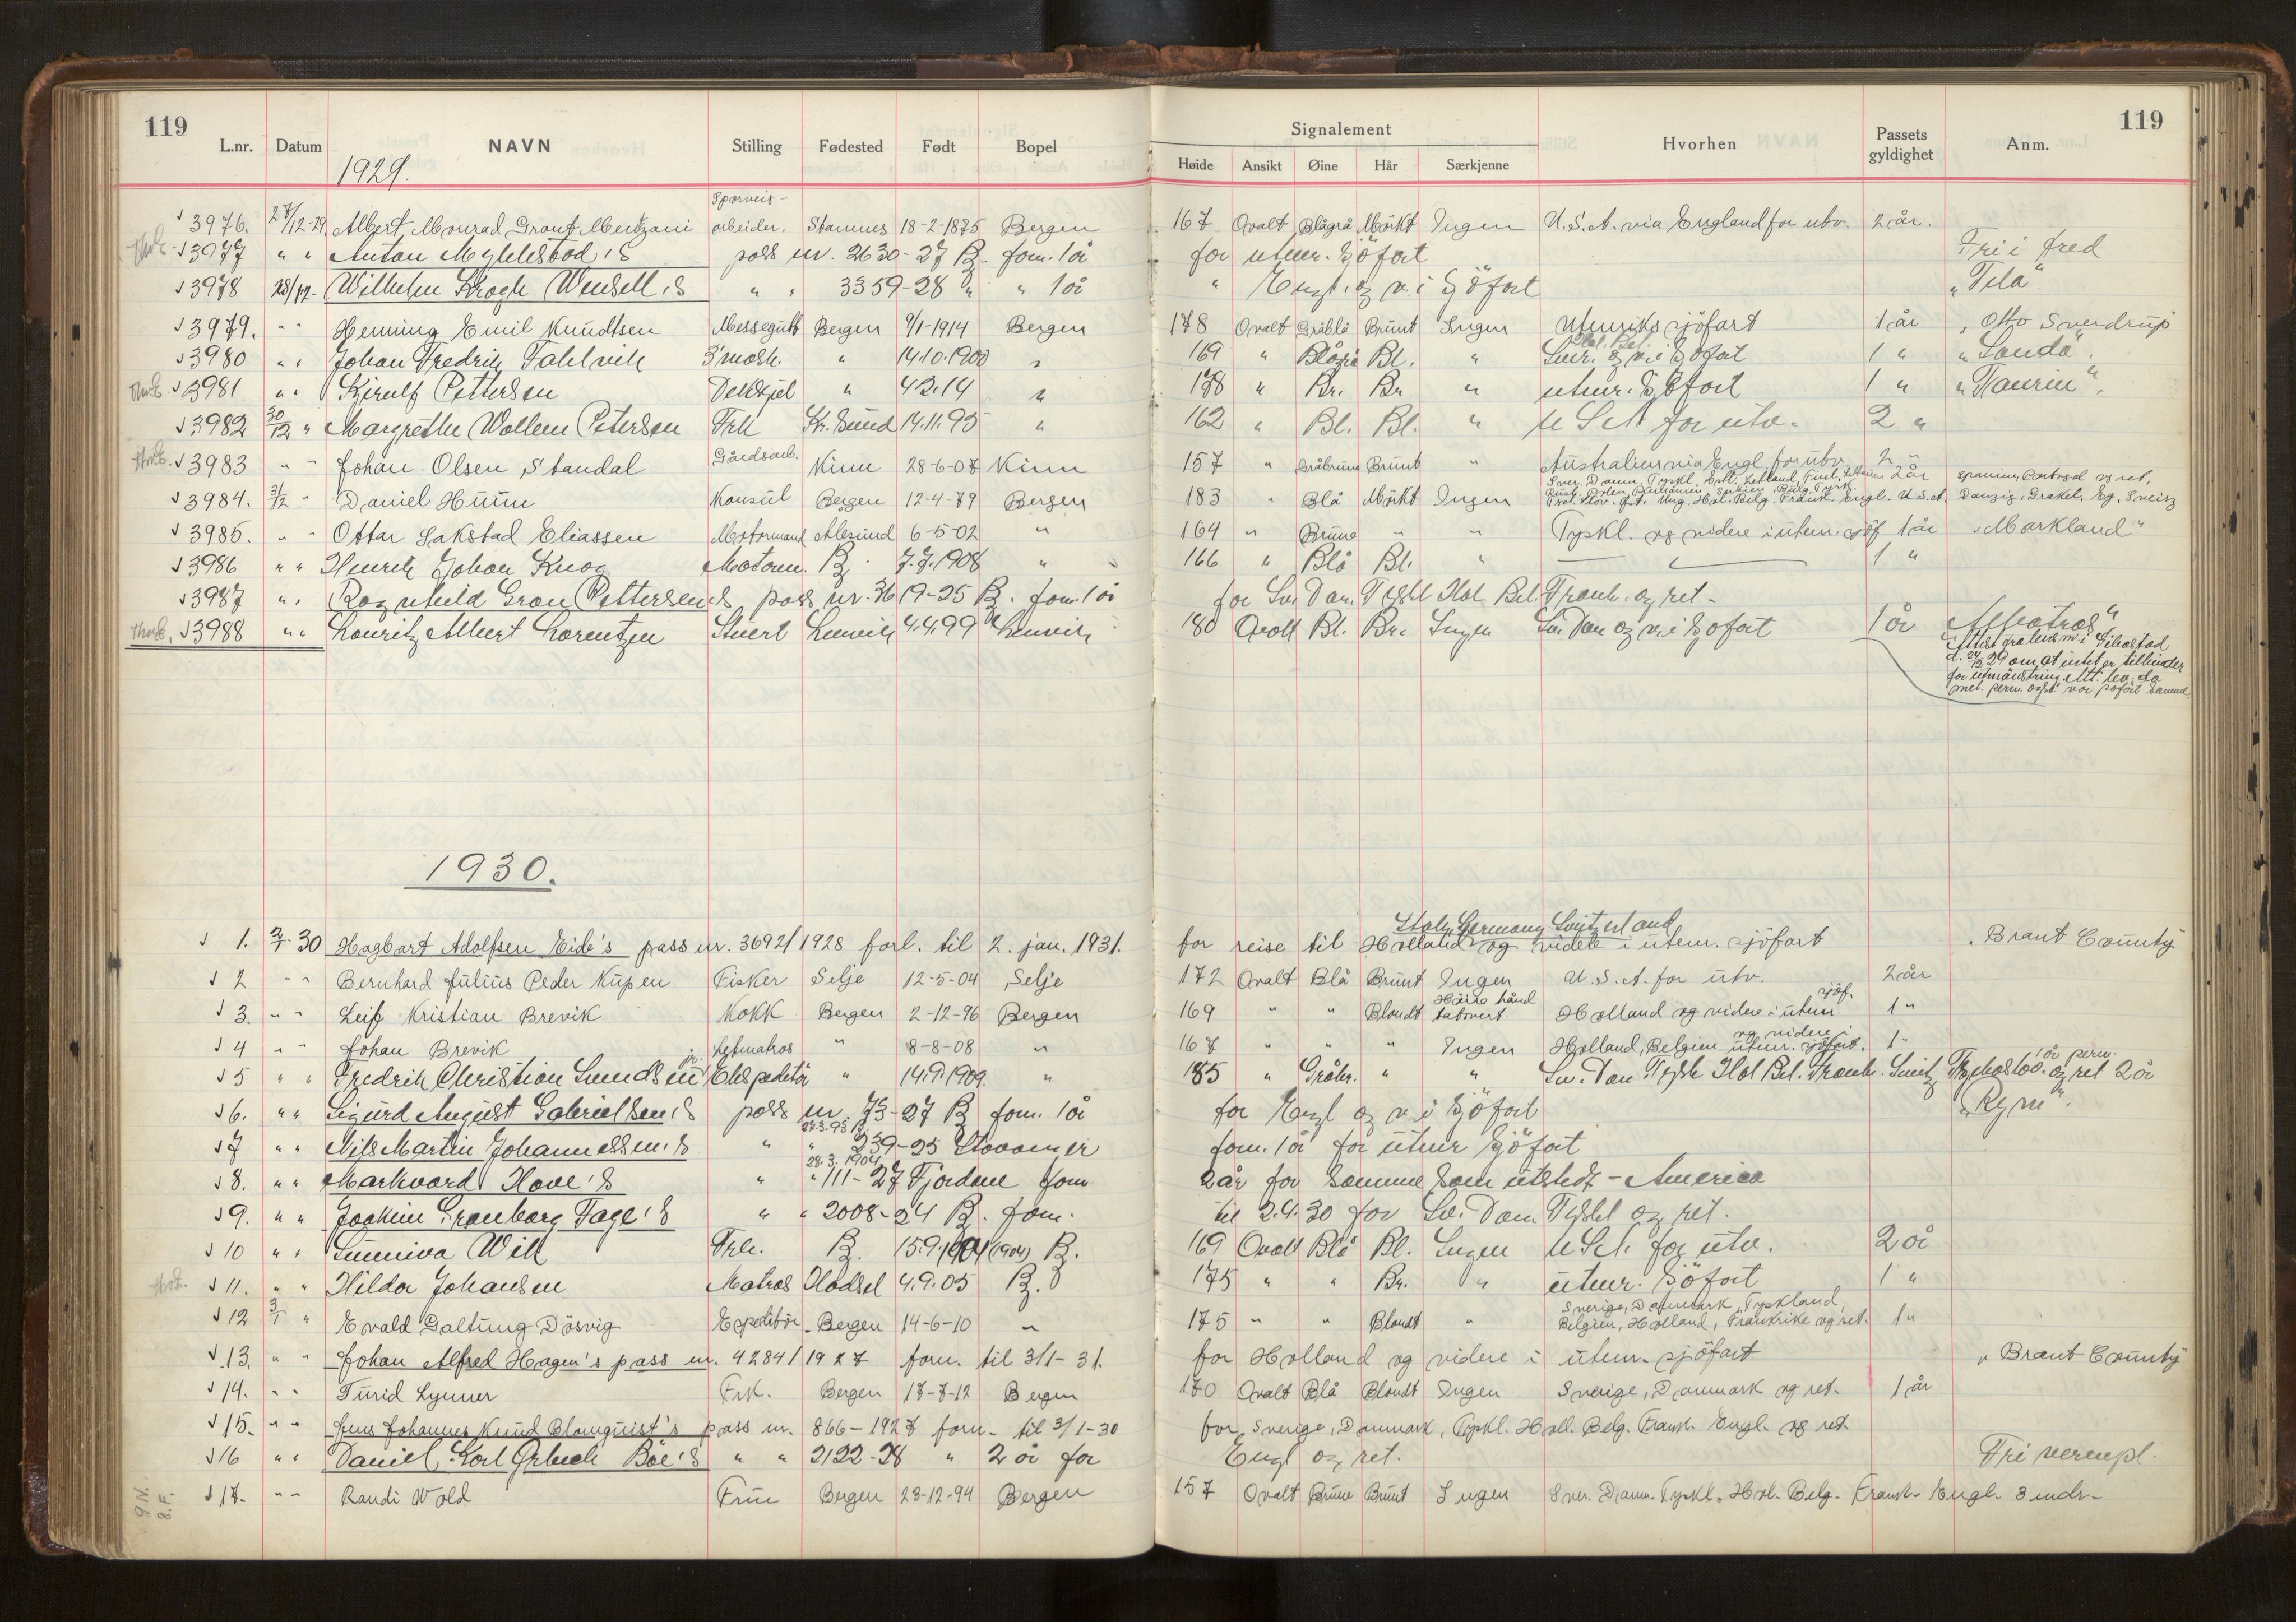 119 119
L.nr. Datum NAVN Stilling Fødested Født Bopel Signalement Hvorhen Passets gyldighet Anm.
Høide Ansikt Øine Hår Særkjenne
1929.
3976. 27/12-29. Albert Monrad Grant Mentzoni Sporveis-arbeider. Stamnes 18-2-1875 Bergen 167 Ovalt Blågrå Mörkt Ingen U.S.A. via England for utv. 2 år.
3977 " " Anton Myklebad's pass nr. 2630-27 B. forn. 1 år for utenr. Sjöfart Fri i fred
3978 28/12- Wilhelm Krogh Wendell's " " 3359-28 " " 1 år " Engl. og v. i Sjöfart "Tela"
3979. " " Henning Emil Knudtsen Messegutt Bergen 9/1-1914 Bergen 178 Ovalt Gråblå Brunt Ingen Utenriks sjöfart 1 år "Otto Sverdrup
3980 " " Johan Fredrik Fahlvik 3'mask. " 14.10.1900 " 169 " Blågrå Bl. " og v. i Sjöfart 1 " "Sanda".
3981 " " Kjerulf Pettersen " 4.2.14 " 178 " Br. Br " utenr. Sjöfart 1 " "Taurin".
3982 30/12 " Margrethe Wollem Petersen Frk Kr.Sund 14.11.95 " 162 " Bl. Bl. " U S A for utv. 2 "
3983 " " Johan Olsen Standal Gårdsarb. Kinn 28-6-07 Kinn 157 " Gråbrune Brunt " Australien via Engl. for utv. 2 "
3984. 31/12 " Daniel Huun Konsul Bergen 12-4-79 Bergen 183 " Blå Mörkt Ingen Sver. Danm. Tyskl. Estl. Letland, Finl. 2 år Spanien, Portugal og ret,
Russl. Polen, Rumænien, Serbien Bulg. Tyrk. Øst. Ung. Hol. Belg. Frank. Engl. U.S.A. Danzig, Grækel. Eg, Sveitz
3985. " " Ottar Lakstad Eliassen Motormand Ålesund 6-5-02 " 164 " Brune " " Tyskl. og videre i utenr. sjöf 1 år "Markland"
3986 " " Henrik Johan Knag Motorm. B. 7.7.1908 " 166 " Blå Bl. " 1 "
3987 " " Ragnhild Gran Pettersen's pass nr. 3619-25 B. forn. 1 år for Sv. Dan. Tyskl Hol. Bel. Frank. og ret.
3988 " " Lauritz Albert Lorentzen Stuert Lenvik 4.4.99 Lenvik 180 Ovalt Bl. Br. Ingen Sv. Dan og v. i Sjöfart 1 år "Albatros"
Attest fra lensm. i Gibostad
d. 24/12 29 om at intet er til hinder
for utmönstring. Att. lev. da
met. perm. også var påført samme.
1930.
1. 2/1-30 Hagbart Adolfsen Eide's pass nr. 3692/1928 forl. til 2. jan. 1931. for reise til Italy, Germany, Switzerland Holland og videre i utenr. sjöfart "Brant County
2 " " Bernhard Julius Peder Kupen Fisker Selje 12-5-04 Selje 172 Ovalt Blå Brunt Ingen U.S.A. for utv. 2 år
3. " " Leif Kristian Brevik Kokk Bergen 2-12-96 Bergen 169 " " Blondt Höire hånd tatovert Holland og videre i utenr. sjöf. 1 "
4 " " Johan Brevik Letmatros " 8-8-08 " 167 " " " Ingen Holland, Belgien og videre i utenr. sjöfart. 1 "
5 " " Fredrik Christian Sundsen jr. Ekspeditör " 14.9.1909. " 185 " Gråbr. " " Sv. Dan. Tysk Hol. Bel. Frank. Sveitz og ret 2 år
6. " " Sigurd August Gabrielsen's pass nr. 75-27 B forn. 1 år for Engl og v. i Sjöfart "Rym".
7 " " Nils Martin Johannessen's " " 28.3.95 239-25 Stavanger forn. 1 år for utenr Sjöfart
8. " " Markvard Hove's " 28.3.1904 " 111-27 Fjordane forn 2 år for samme som utstedt - America
9. " " Joakim Grønborg Fage's " " 2008-24 B. forn. til 2.4.30 for Sv. Dan. Tyskl og ret.
10 " " Sunniva Will Frk. B. 15.9.1904 (1904) B. 169 Ovalt Blå Bl. Ingen U S A. for utv. 2 år
11. " " Hildor Johansen Matros Hadsel 4.9.05 B. 175 " " Br. " utenr. Sjöfart 1 "
12 3/1 " Evald Galtung Dösvig Expeditör Bergen 14-6-10 " 175 " " Blondt " Sverige, Danmark, Tyskland, Belgien, Holland, Frankrike og ret. 1 "
13. " " Johan Alfred Hagen's pass nr. 4284/1927 forn. til 3/1-31. for Holland og videre i utenr. sjöfart "Brant County
14. " " Turid Lynner Frk. Bergen 17-7-12 Bergen 170 Ovalt Blå Blondt Ingen Sverige, Danmark og ret. 1 år
15. " " Jens Johannes Knud Blomquist's pass nr. 866-1927 forn. til 3/1-30 for Sverige, Danmark, Tyskl. Holl. Belg. Frank. Engl. og ret
16 " " Daniel Karl Bøe's " " 2122-28 " 2 år for Engl og ret. Fri
17. " " Randi Wold Frue Bergen 23-12-94 Bergen 157 Ovalt Brune Brunt Ingen Sver. Danm. Tyskl. Hol. Belg. Frank. Engl. 3 mdr.
9 N.
8. F.